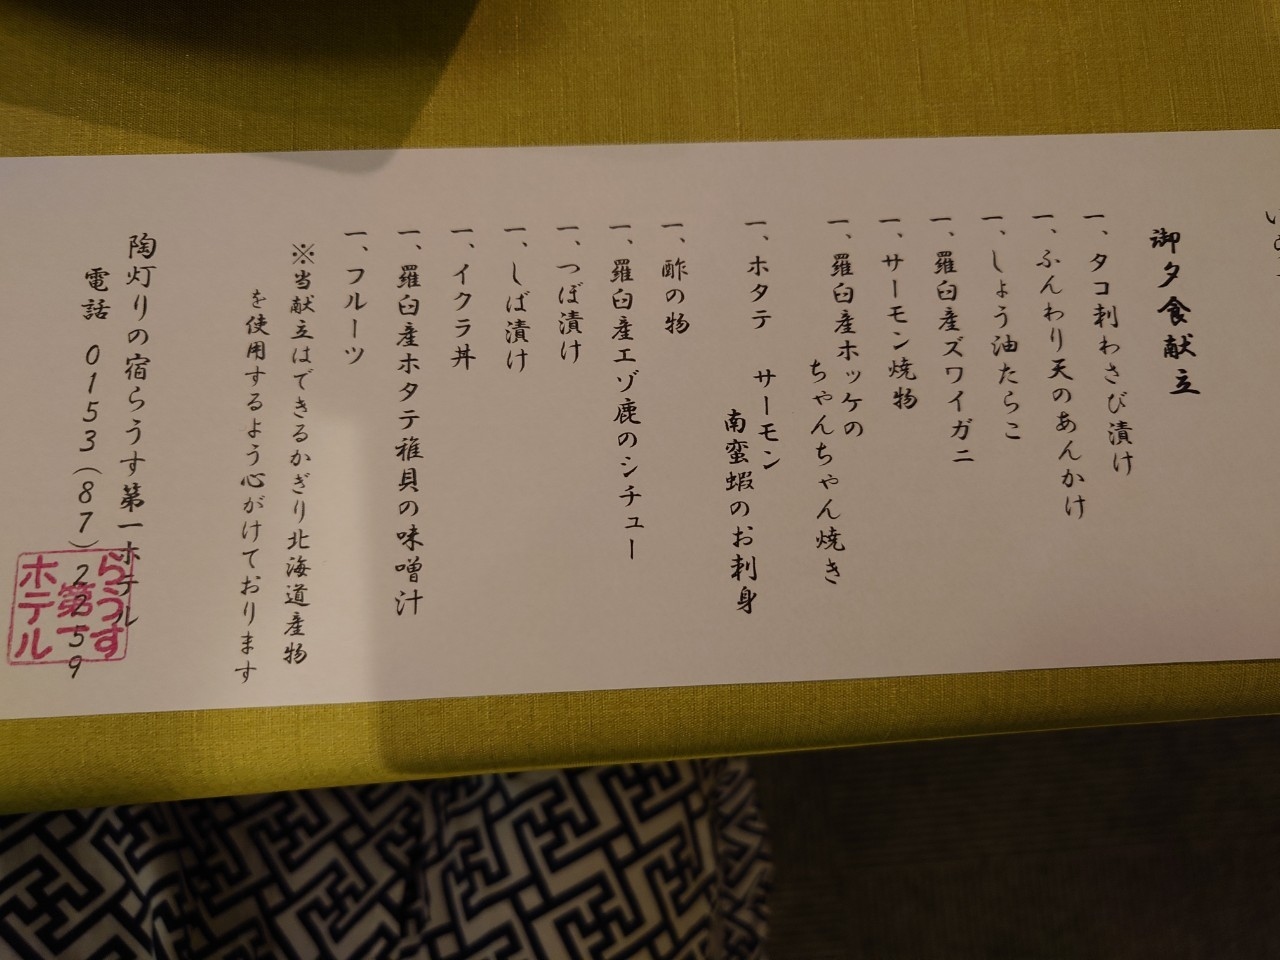 御夕食献立
一、タコ刺わさび漬け
一、ふんわり天のあんかけ
一、しょう油たらこ
一、羅臼産ズワイガニ
一、サーモン焼物
一、羅臼産ホッケの
ちゃんちゃん焼き
一、ホタテ　サーモン
南蛮蝦のお刺身
一、酢の物
一、羅臼産エゾ鹿のシチュー
一、つぼ漬け
一、しば漬け
一、イクラ丼
一、羅臼産ホタテ稚貝の味噌汁
一、フルーツ
※当献立はできるかぎり北海道産物
を使用するよう心がけております
陶灯りの宿らうす第一ホテル
電話 0153(87)2259
らうす
第一
ホテル